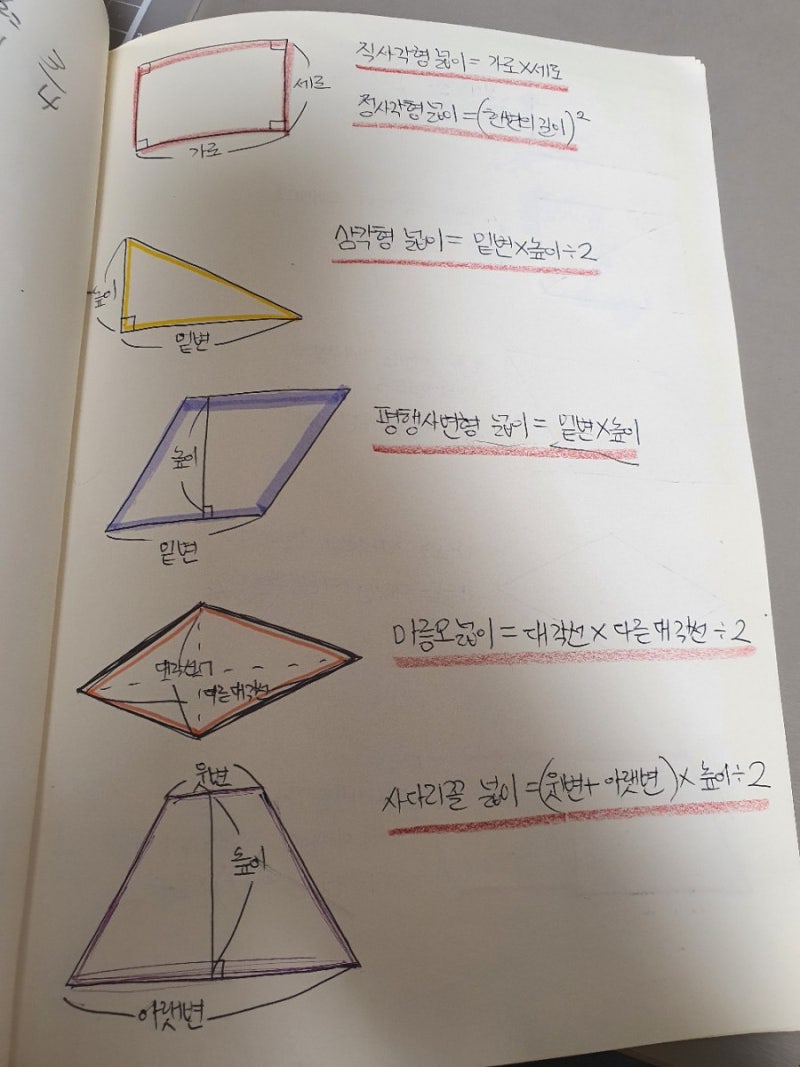 3/4
직사각형 넓이 = 가로×세로
세로
정사각형 넓이 = (한변의 길이)²
가로
삼각형 넓이 = 밑변×높이÷2
높이
밑변
평행사변형 넓이 = 밑변×높이
높이
밑변
마름모 넓이 = 대각선 × 다른 대각선 ÷ 2
대각선
다른 대각선
윗변
사다리꼴 넓이 = (윗변 + 아랫변) × 높이 ÷ 2
높이
아랫변